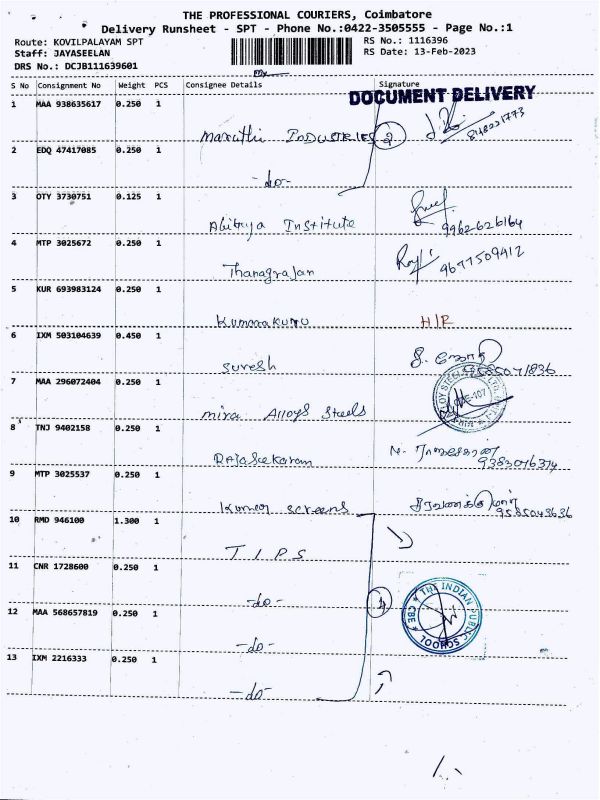 THE PROFESSIONAL COURIERS, Coimbatore
Delivery Runsheet - SPT - Phone No.:0422-3505555 - Page No.:1
Route: KOVILPALAYAM SPT RS No.: 1116396
Staff: JAYASEELAN RS Date: 13-Feb-2023
DRS No.: DCJB111639601
S No Consignment No Weight PCS Consignee Details Signature
DOCUMENT DELIVERY
1 MAA 938635617 0.250 1
Maruthi INDUSTRIES 2 8148221773
2 EDQ 47417085 0.250 1
-do-
3 OTY 3730751 0.125 1
Abitya Institute 9962626164
4 MTP 3025672 0.250 1
Thanagrajan 9677509412
5 KUR 693983124 0.250 1
Kumarakuru H/R
6 IXM 503104639 0.450 1
Suresh 9585071836
7 MAA 296072404 0.250 1
Mira Alloys Steels
8 TNJ 9402158 0.250 1
RAJASeekaram N. 9383076374
9 MTP 3025537 0.250 1
Kumar screens சரவணக்குமார் 9585043636
10 RMD 946100 1.300 1
T I P S
11 CNR 1728600 0.250 1
-do- 4
THE INDIAN PUBLIC SCHOOL CBE
12 MAA 568657819 0.250 1
-do-
13 IXM 2216333 0.250 1
-do-